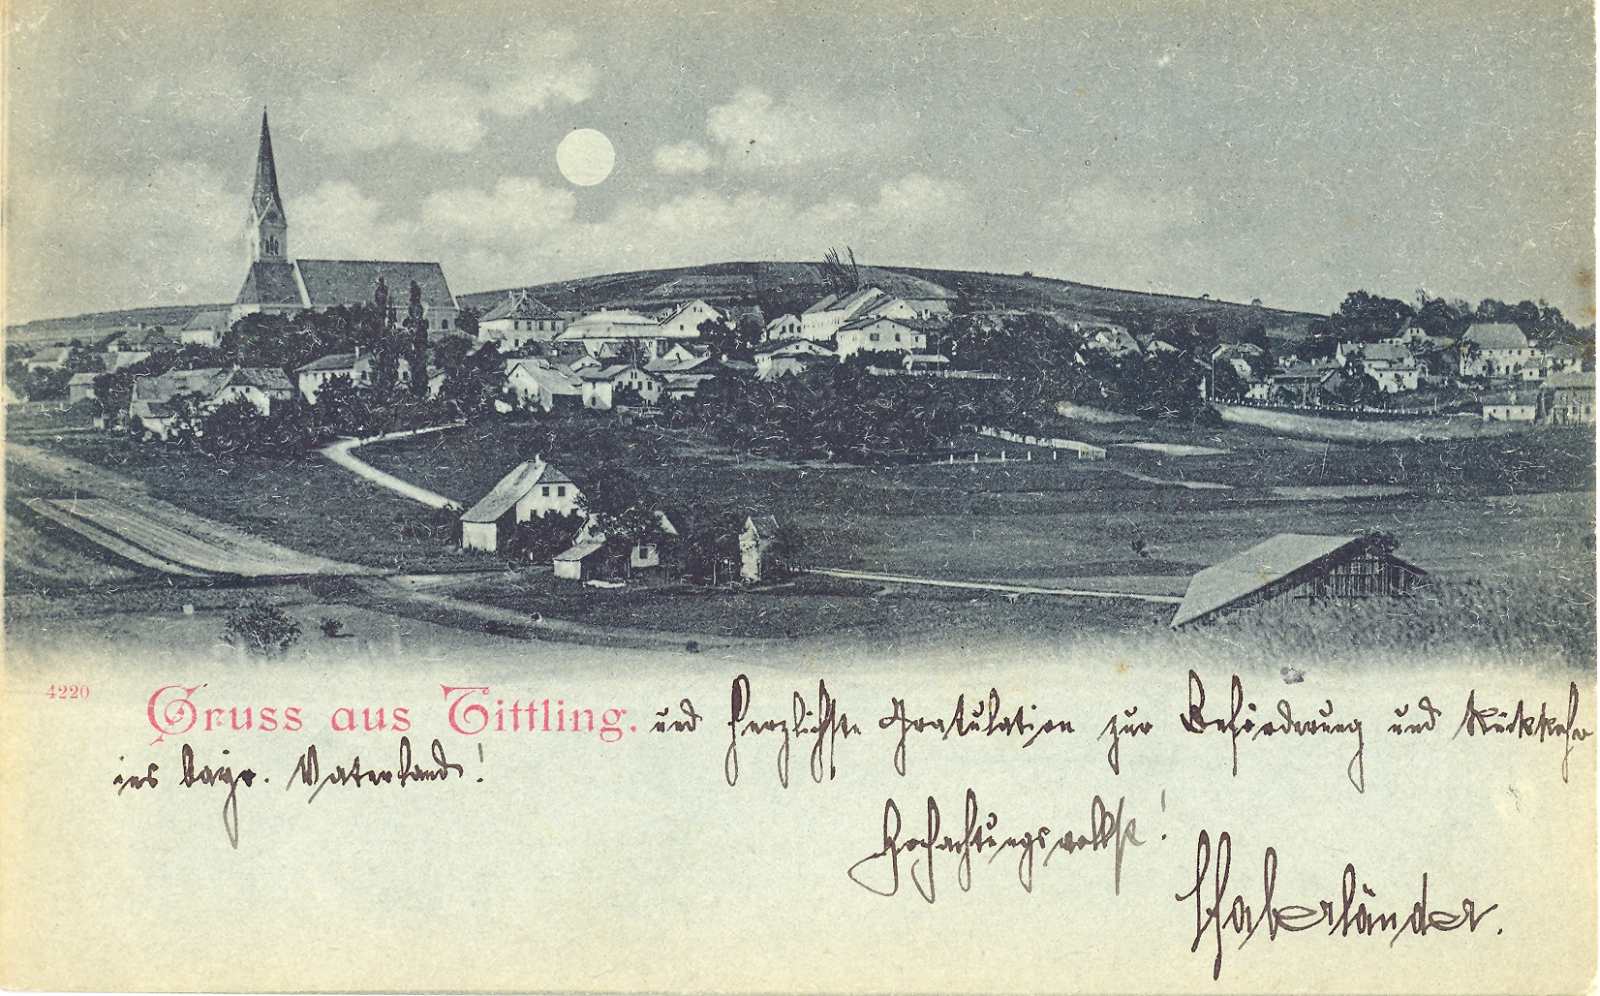 4220 Gruss aus Tittling. und herzlichste Gratulation zur Beförderung und Rückkehr
ins bayr. Vaterland!
Hochachtungsvollst!
Haberländer.